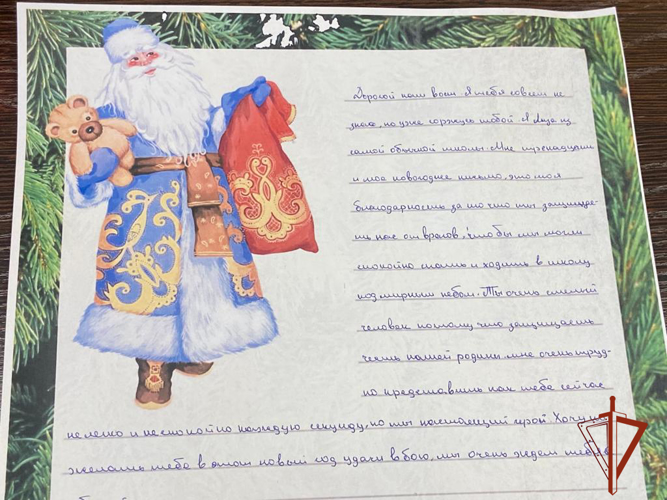 Дорогой наш воин я тебя совсем не
знаю, но уже горжусь тобой я Лиза из
самой обычной школы. Мне тринадцать
и моё новогоднее письмо, это моя
благодарность за то что ты защищае-
шь нас от врагов, чтобы мы могли
спокойно спать и ходить в школу
под мирным небом. Ты очень смелый
человек потому что защищаешь
честь нашей родины мне очень труд-
но представить как тебе сейчас
не легко и не спокойно каждую секунду, но ты настоящий герой Хочу по
желать тебе в этом новый год удачи в бою, мы очень ждем тебя